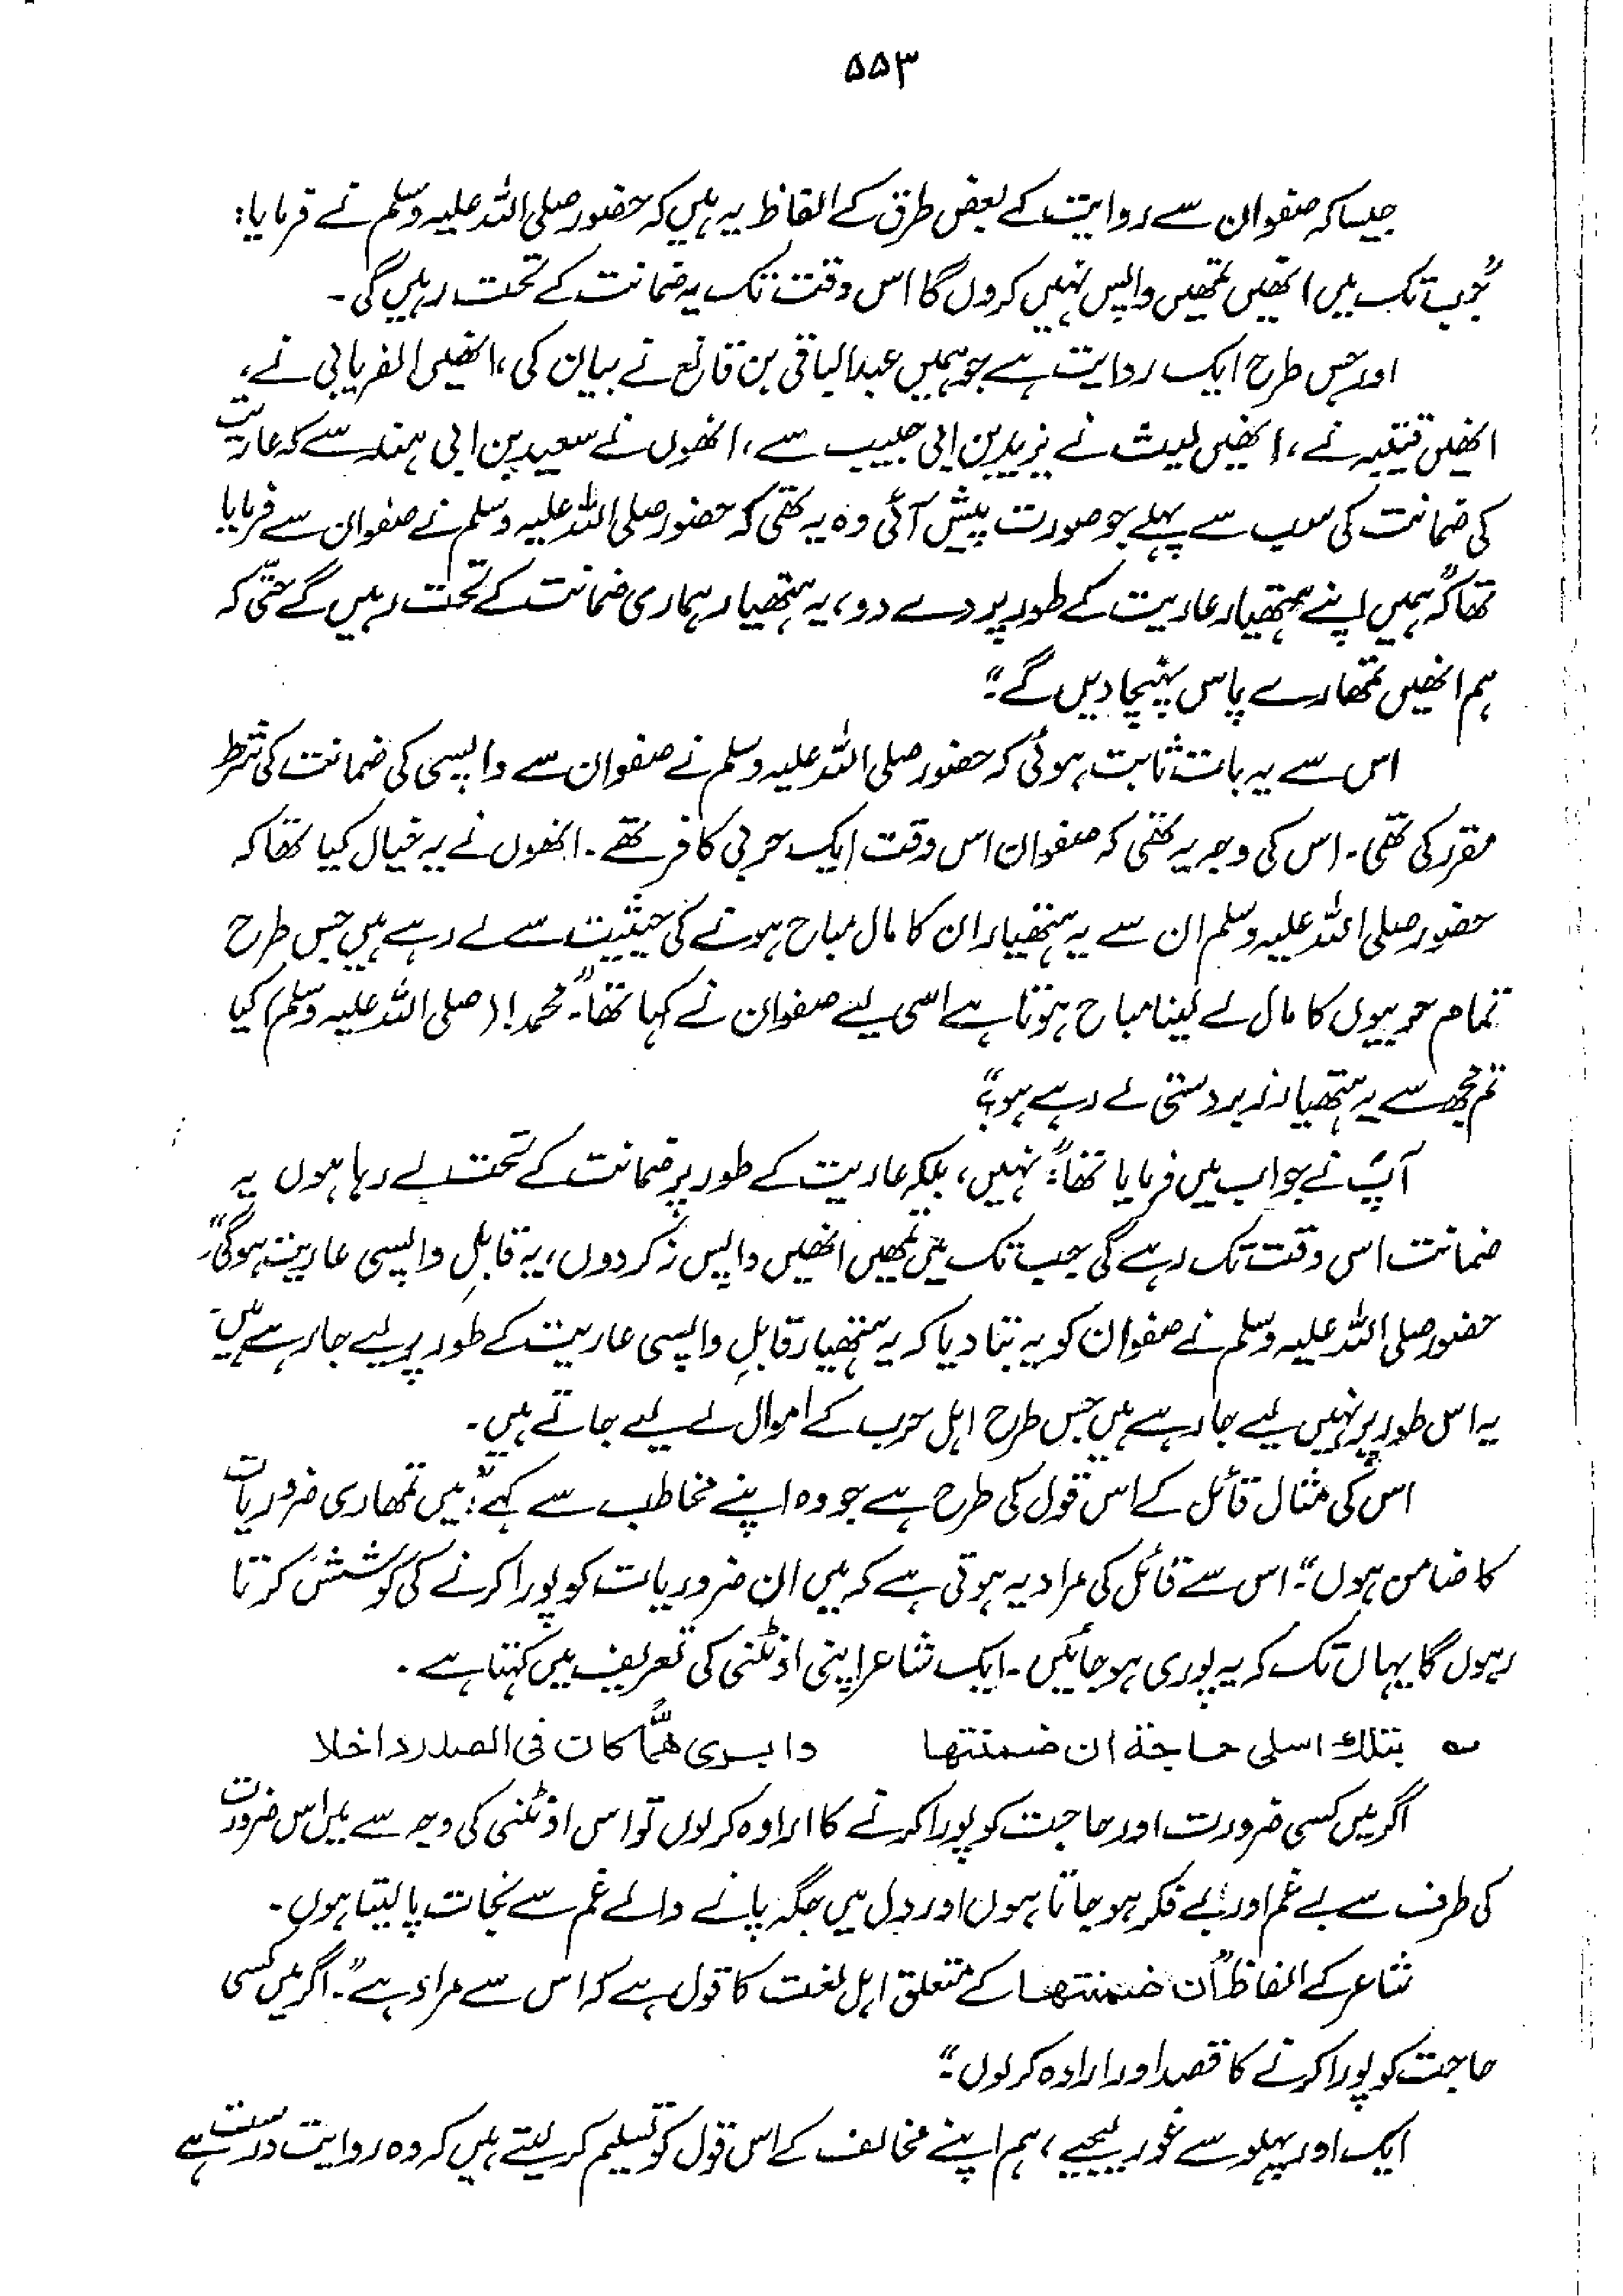 ۵۵۳
جیسا کہ صفوان سے روایت کے بعض طرق کے الفاظ یہ ہیں کہ حضور صلی اللہ علیہ وسلم نے فرمایا:
"جب تک میں انھیں تمھیں واپس نہیں کروں گا اس وقت تک یہ ضمانت کے تحت رہیں گی۔
اور جس طرح ایک روایت ہے جو ہمیں عبدالباقی بن قانع نے بیان کی، انھیں الفریابی نے،
انھیں قتیبہ نے، انھیں لیث نے یزید بن ابی حبیب سے، انھوں نے سعید بن ابی ہند سے کہ عاریت
کی ضمانت کی سب سے پہلے جو صورت پیش آئی وہ یہ تھی کہ حضور صلی اللہ علیہ وسلم نے صفوان سے فرمایا
تھا کہ "ہمیں اپنے ہتھیار عاریت کے طور پر دے دو، یہ ہتھیار ہماری ضمانت کے تحت رہیں گے حتّٰی کہ
ہم انھیں تمھارے پاس پہنچا دیں گے۔"
اس سے یہ بات ثابت ہوئی کہ حضور صلی اللہ علیہ وسلم نے صفوان سے واپسی کی ضمانت کی شرط
مقرر کی تھی۔ اس کی وجہ یہ تھی کہ صفوان اس وقت ایک حربی کافر تھے۔ انھوں نے یہ خیال کیا تھا کہ
حضور صلی اللہ علیہ وسلم ان سے یہ ہتھیار ان کا مال مباح ہونے کی حیثیت سے لے رہے ہیں جس طرح
تمام حربیوں کا مال لے لینا مباح ہوتا ہے اسی لیے صفوان نے کہا تھا۔ "محمد! (صلی اللہ علیہ وسلم) کیا
تم مجھ سے یہ ہتھیار زبردستی لے رہے ہو؟"
آپؐ نے جواب میں فرمایا تھا: "نہیں، بلکہ عاریت کے طور پر ضمانت کے تحت لے رہا ہوں یہ
ضمانت اس وقت تک رہے گی جب تک میں تمھیں انھیں واپس نہ کردوں، یہ قابلِ واپسی عاریت ہوگی"۔
حضور صلی اللہ علیہ وسلم نے صفوان کو یہ بتا دیا کہ یہ ہتھیار قابلِ واپسی عاریت کے طور پر لیے جا رہے ہیں۔
یہ اس طور پر نہیں لیے جا رہے ہیں جس طرح اہل حرب کے اموال لے لیے جاتے ہیں۔
اس کی مثال قائل کے اس قول کی طرح ہے جو وہ اپنے مخاطب سے کہے: "میں تمھاری ضروریات
کا ضامن ہوں"۔ اس سے قائل کی مراد یہ ہوتی ہے کہ میں ان ضروریات کو پورا کرنے کی کوشش کرتا
رہوں گا یہاں تک کہ یہ پوری ہو جائیں۔ ایک شاعر اپنی اونٹنی کی تعریف میں کہتا ہے۔
؎ بتلك اسلی حاجة ان ضمنتها وابری ھمًّا کان فی الصدر داخلا
اگر میں کسی ضرورت اور حاجت کو پورا کرنے کا ارادہ کرلوں تو اس اونٹنی کی وجہ سے میں اس ضرورت
کی طرف سے بے غم اور بے فکر ہو جاتا ہوں اور دل میں جگہ پانے والے غم سے نجات پا لیتا ہوں۔
شاعر کے الفاظ "ان ضمنتها کے متعلق اہل لغت کا قول ہے کہ اس سے مراد ہے"۔ اگر میں کسی
حاجت کو پورا کرنے کا قصد اور ارادہ کرلوں۔"
ایک اور پہلو سے غور کیجیے، ہم اپنے مخالف کے اس قول کو تسلیم کر لیتے ہیں کہ وہ روایت درست ہے